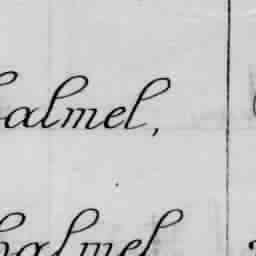 halmel,
halmel